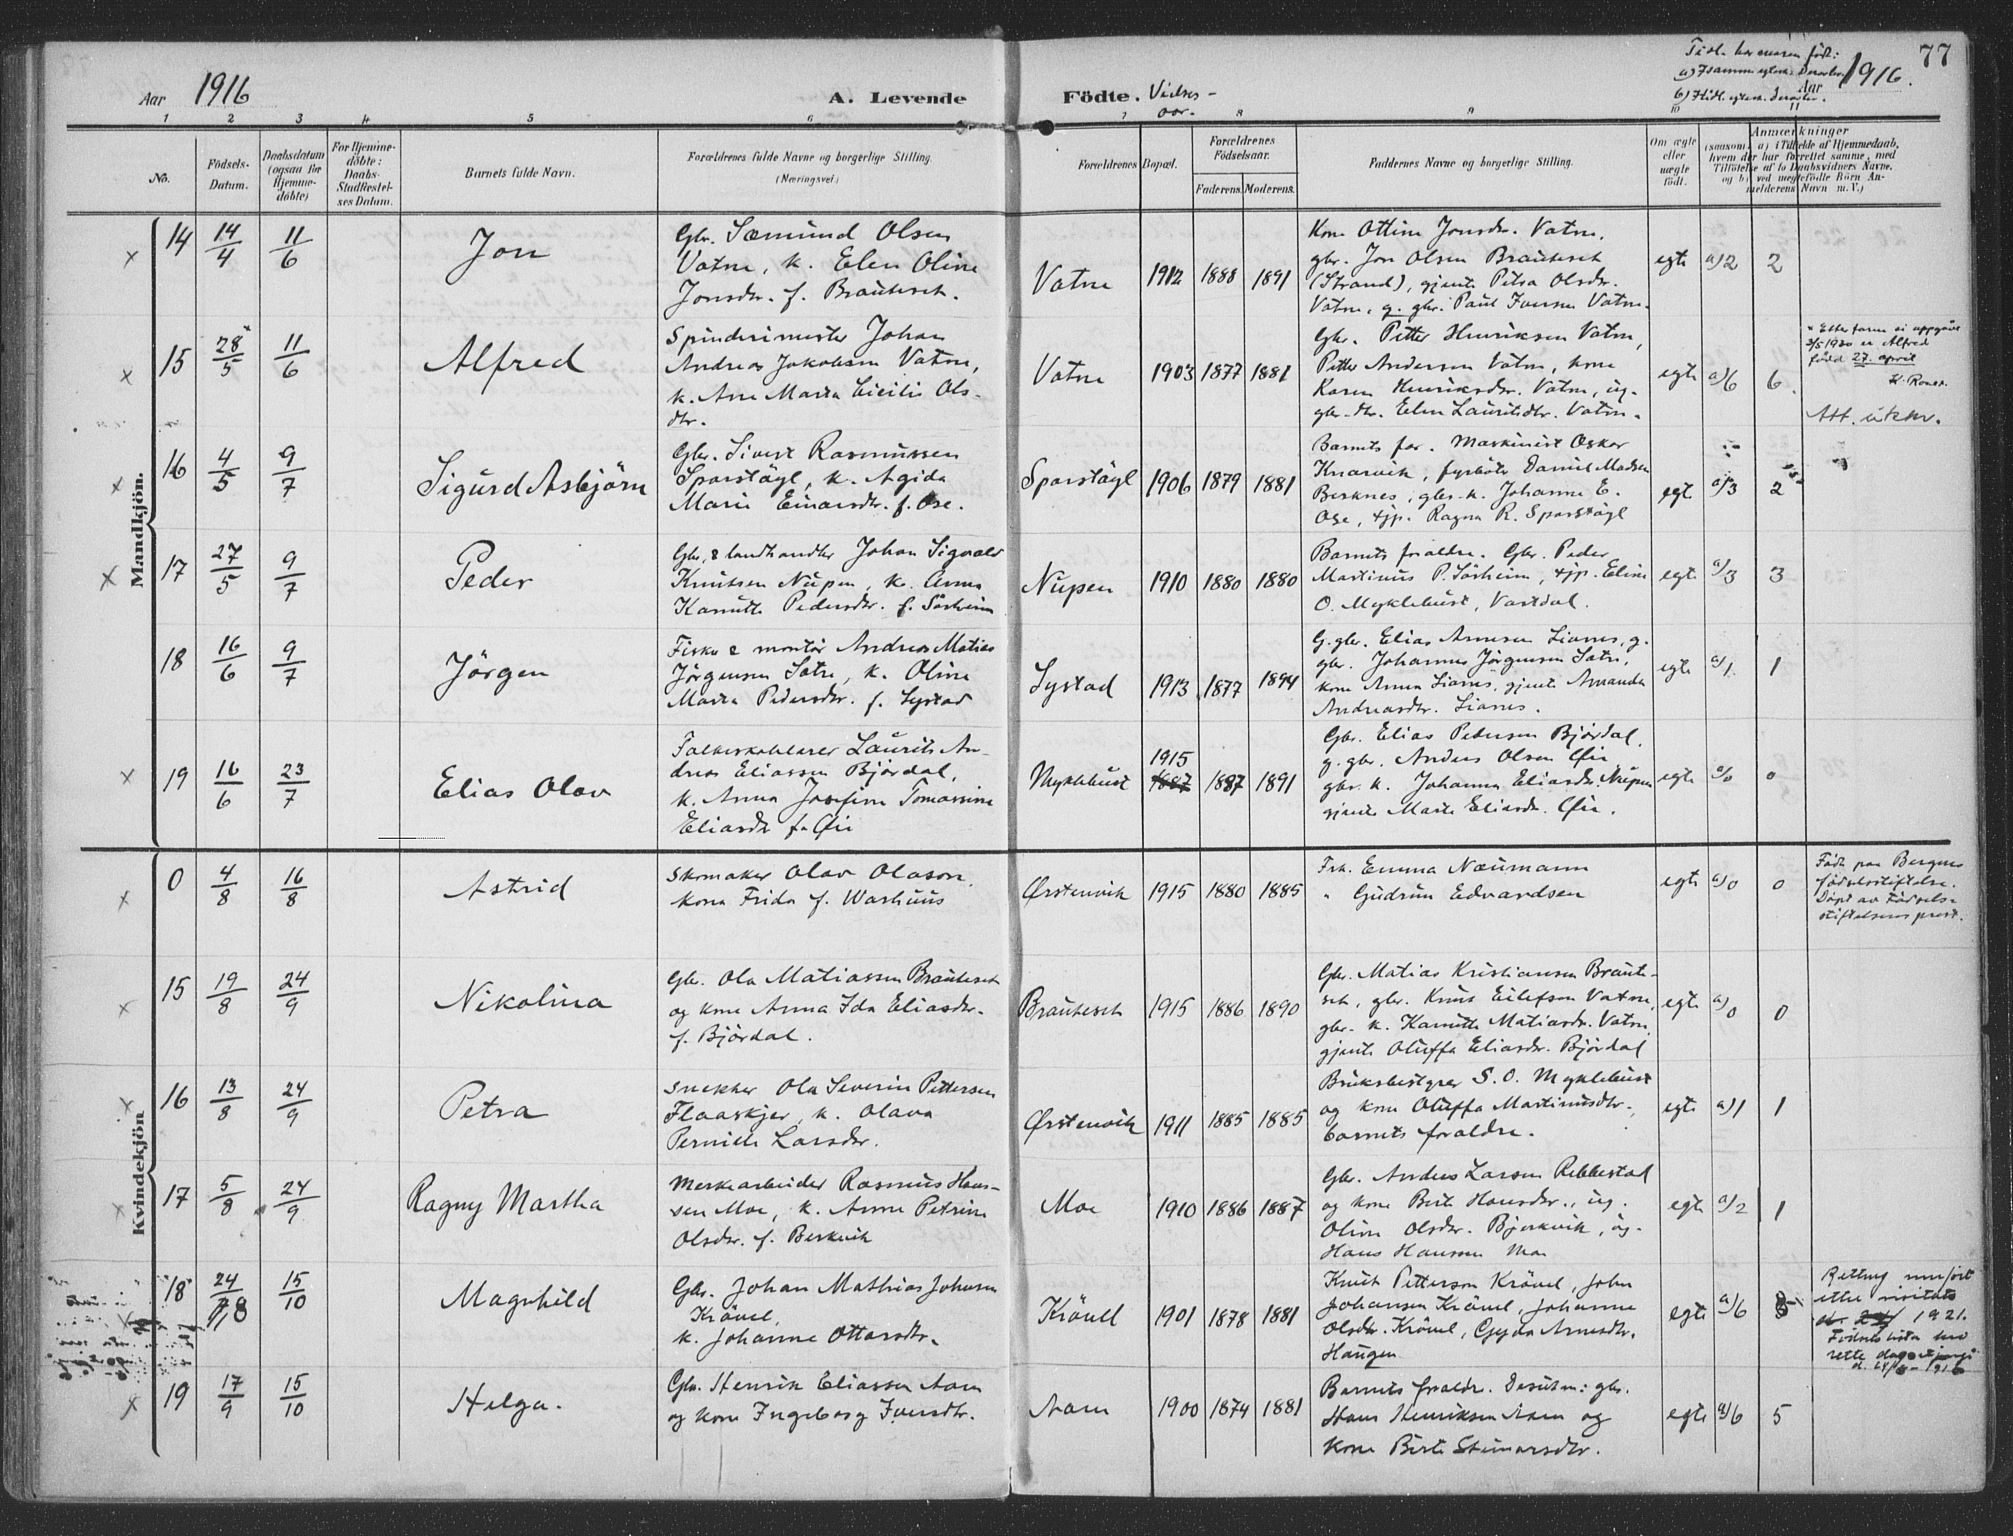 Aar 1916
A. Levende Födte.
Vielses-
aar.
Tidl. har moren født:
a) I samme egtesk.
b) I tidl. egtesk.
Aar 1916.
77
1 2 3 4 5 6 7 8 9 10 11
No.
Födsels-
Datum.
Daabsdatum
(ogsaa for
Hjemme-
döbte)
For Hjemme-
döbte:
Daabs-
Stadfestel-
ses Datum.
Barnets fulde Navn.
Forældrenes fulde Navne og borgerlige Stilling.
(Næringsvei.)
Forældrenes Bopæl.
Forældrenes
Födselsaar.
Faderens. Moderens.
Faddernes Navne og borgerlige Stilling.
Om ægte
eller
uægte
født.
Anmærkninger
(saasom: a) i Tilfælde af Hjemmedaab,
hvem der har forrettet samme, med
Tilföielse af to Daabsvidners Navne,
og b) ved uægtefödte Börn An-
melderens Navn m. V.)
Mandkjön.
14 14/4 11/6 Jon
Gbr. Sæmund Olsen
Vatne, k. Elen Oline
Jonsdtr. f. Brauteset.
Vatne 1912 1888 1891
Kone Ottine Jonsdtr. Vatne,
gbr. Jon Olsen Brauteset
(Strand), gjente Petra Olsdr.
Vatne, g. gbr. Paul Iversen Vatne.
egte a)2 2
15 28/5 11/6 Alfred
Spinderimester Johan
Andreas Jakobsen Vatne,
k. Ane Marta Cicilie Ols-
dtr.
Vatne 1903 1877 1881
Gbr. Petter Henriksen Vatne,
Petter Andersen Vatne, kone
Karen Henriksdr. Vatne, ug.
gbr. dtr. Elen Lauritsdtr. Vatne.
egte a)6 6.
× Efter faren si uppgåve
3/5 1930 er Alfred
født 27. april
Att. utskr.
16 4/5 9/7 Sigurd Asbjörn
Gbr. Sivert Rasmussen
Sporstøyl, k. Agida
Marie Einarsdtr. f. Ose.
Sporstöyl 1906 1879 1881
Barnets far. Maskinist Oskar
Knarvik, fyrbøter Daniel Madsen
Berknes, gbr. k. Johanne E.
Ose, tjp. Ragna R. Sporstöyl
egte a)3 2
17 27/5 9/7 Peder
Gbr. & landhandler Johan Sigvald
Knutsen Nupen, k. Anna
Kanutte Pedersdtr. f. Sörheim
Nupen 1910 1880 1880
Barnets foraldre. Gbr. Peder
Martinus P. Sörheim, tjp. Eline
O. Myklebust, Vartdal.
egte a)3 3
18 16/6 9/7 Jörgen
Fisker & montör Andreas Matias
Jörgensen Sætre, k. Oline
Marta Pedersdtr. f. Systad
Systad 1913 1877 1894
G. gbr. Elias Arnesen Lianes, g.
gbr. Johannes Jörgensen Sætre,
kone Anna Lianes, gjente Amanda
Andreasdtr. Lianes.
egte a)1 1
19 16/6 23/7 Elias Olav
Folkeskolelærer Laurits An-
dreas Eliassen Bjørdal,
k. Anna Josefine Tomasine
Eliasdtr f. Øie
Myklebust 1915 1887 1887 1891
Gbr. Elias Petersen Björdal,
g. gbr. Anders Olsen Øie
gbr. k. Johanna Eliasdtr. Nupen
gjente Marte Eliasdtr. Øie.
egte a)0 0
Kvindekjön
0 4/8 16/8 Astrid
Skomaker Olav Olason,
kona Frida f. Warhuus
Ørstenvik 1915 1880 1885
Frk. Emma Naumann
" Gudrun Edvardsen
egte a)0 0
Födt paa Bergens
födselsstiftelse.
Döpt av Födsels-
stiftelsens prest.
15 19/8 24/9 Nikolina
Gbr. Ola Matiassen Brauteset
og kone Anna Ida Eliasdtr.
f. Björdal.
Brauteset 1915 1886 1890
Gbr. Matias Kristiansen Braute-
set, gbr. Knut Eilefsen Vatne,
gbr. k. Kanutte Matiasdr. Vatne,
gjente Oluffa Eliasdr. Björdal
egte a)0 0
16 13/8 24/9 Petra
Snekker Ola Severin Pettersen
Flaaskjer, k. Olava
Pernille Larsdtr.
Ørstenvik 1911 1885 1885
Bruksbestyrer S. O. Myklebust
og kone Oluffa Martinusdtr.,
barnets foraldre.
egte a)1 1
17 5/8 24/9 Ragny Martha
Merkearbeider Rasmus Hans-
sen Moe, k. Anne Petrine
Olsdtr. f. Berkvik
Moe 1910 1886 1887
Gbr. Anders Larsen Ribbestad
og kone Berte Hansdtr., ug.
Oline Olsdtr. Bjerkvik, ug.
Hans Hanssen Moe
egte a)2 1
18 24/8 15/10 Magnhild
Gbr. Johan Mathias Johansen
Krövel,
k. Johanne Ottarsdtr.
Krövell 1901 1878 1881
Knut Petterson Krövel, John
Johansen Krövel, Johanne
Olsdtr. Krövel, Gyda Arnesdtr.
Haugen
egte a)6 5
Retting innført
etter
1921.
rette dag
d. 24/8-1916
19 17/9 15/10 Helga.
Gbr. Henrik Eliassen Aam
og kone Ingeborg Iversdtr.
Aam 1900 1874 1881
Barnets foraldre. Desuten: gbr.
Hans Henriksen Aam og
kone Berte Steinarsdtr.
egte a)6 5